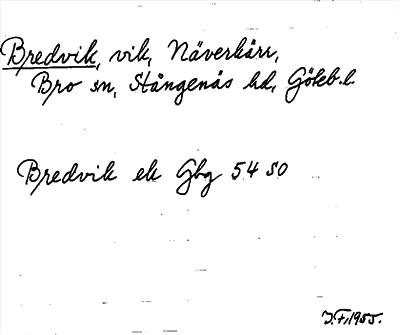 Bredvik, vik, Näverkärr,
Bro sn, Stångenäs hd, Göteb.l.
Bredvik ek Gbg 54 SO
J.F. 1955.